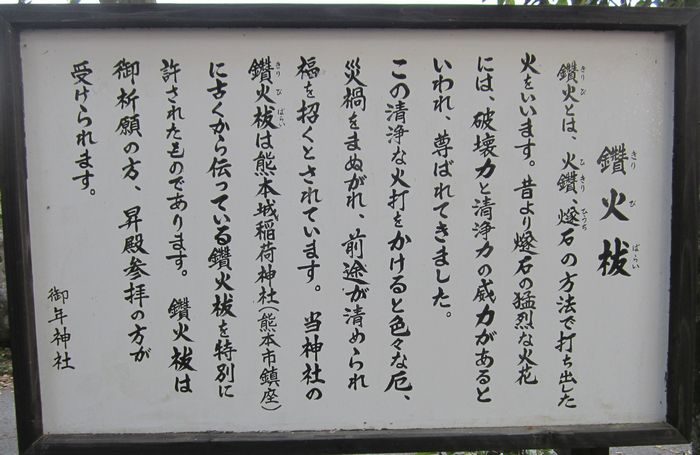 鑽火祓
きりびばらい
鑽火とは、火鑽、燧石の方法で打ち出した
きりび ひきり ひうち
火をいいます。昔より燧石の猛烈な火花
には、破壊力と清浄力の威力があると
いわれ、尊ばれてきました。
この清浄な火打をかけると色々な厄、
災禍をまぬがれ、前途が清められ
福を招くとされています。当神社の
鑽火祓は熊本城稲荷神社(熊本市鎮座)
きりびばらい
に古くから伝っている鑽火祓を特別に
許されたものであります。鑽火祓は
御祈願の方、昇殿参拝の方が
受けられます。
御年神社